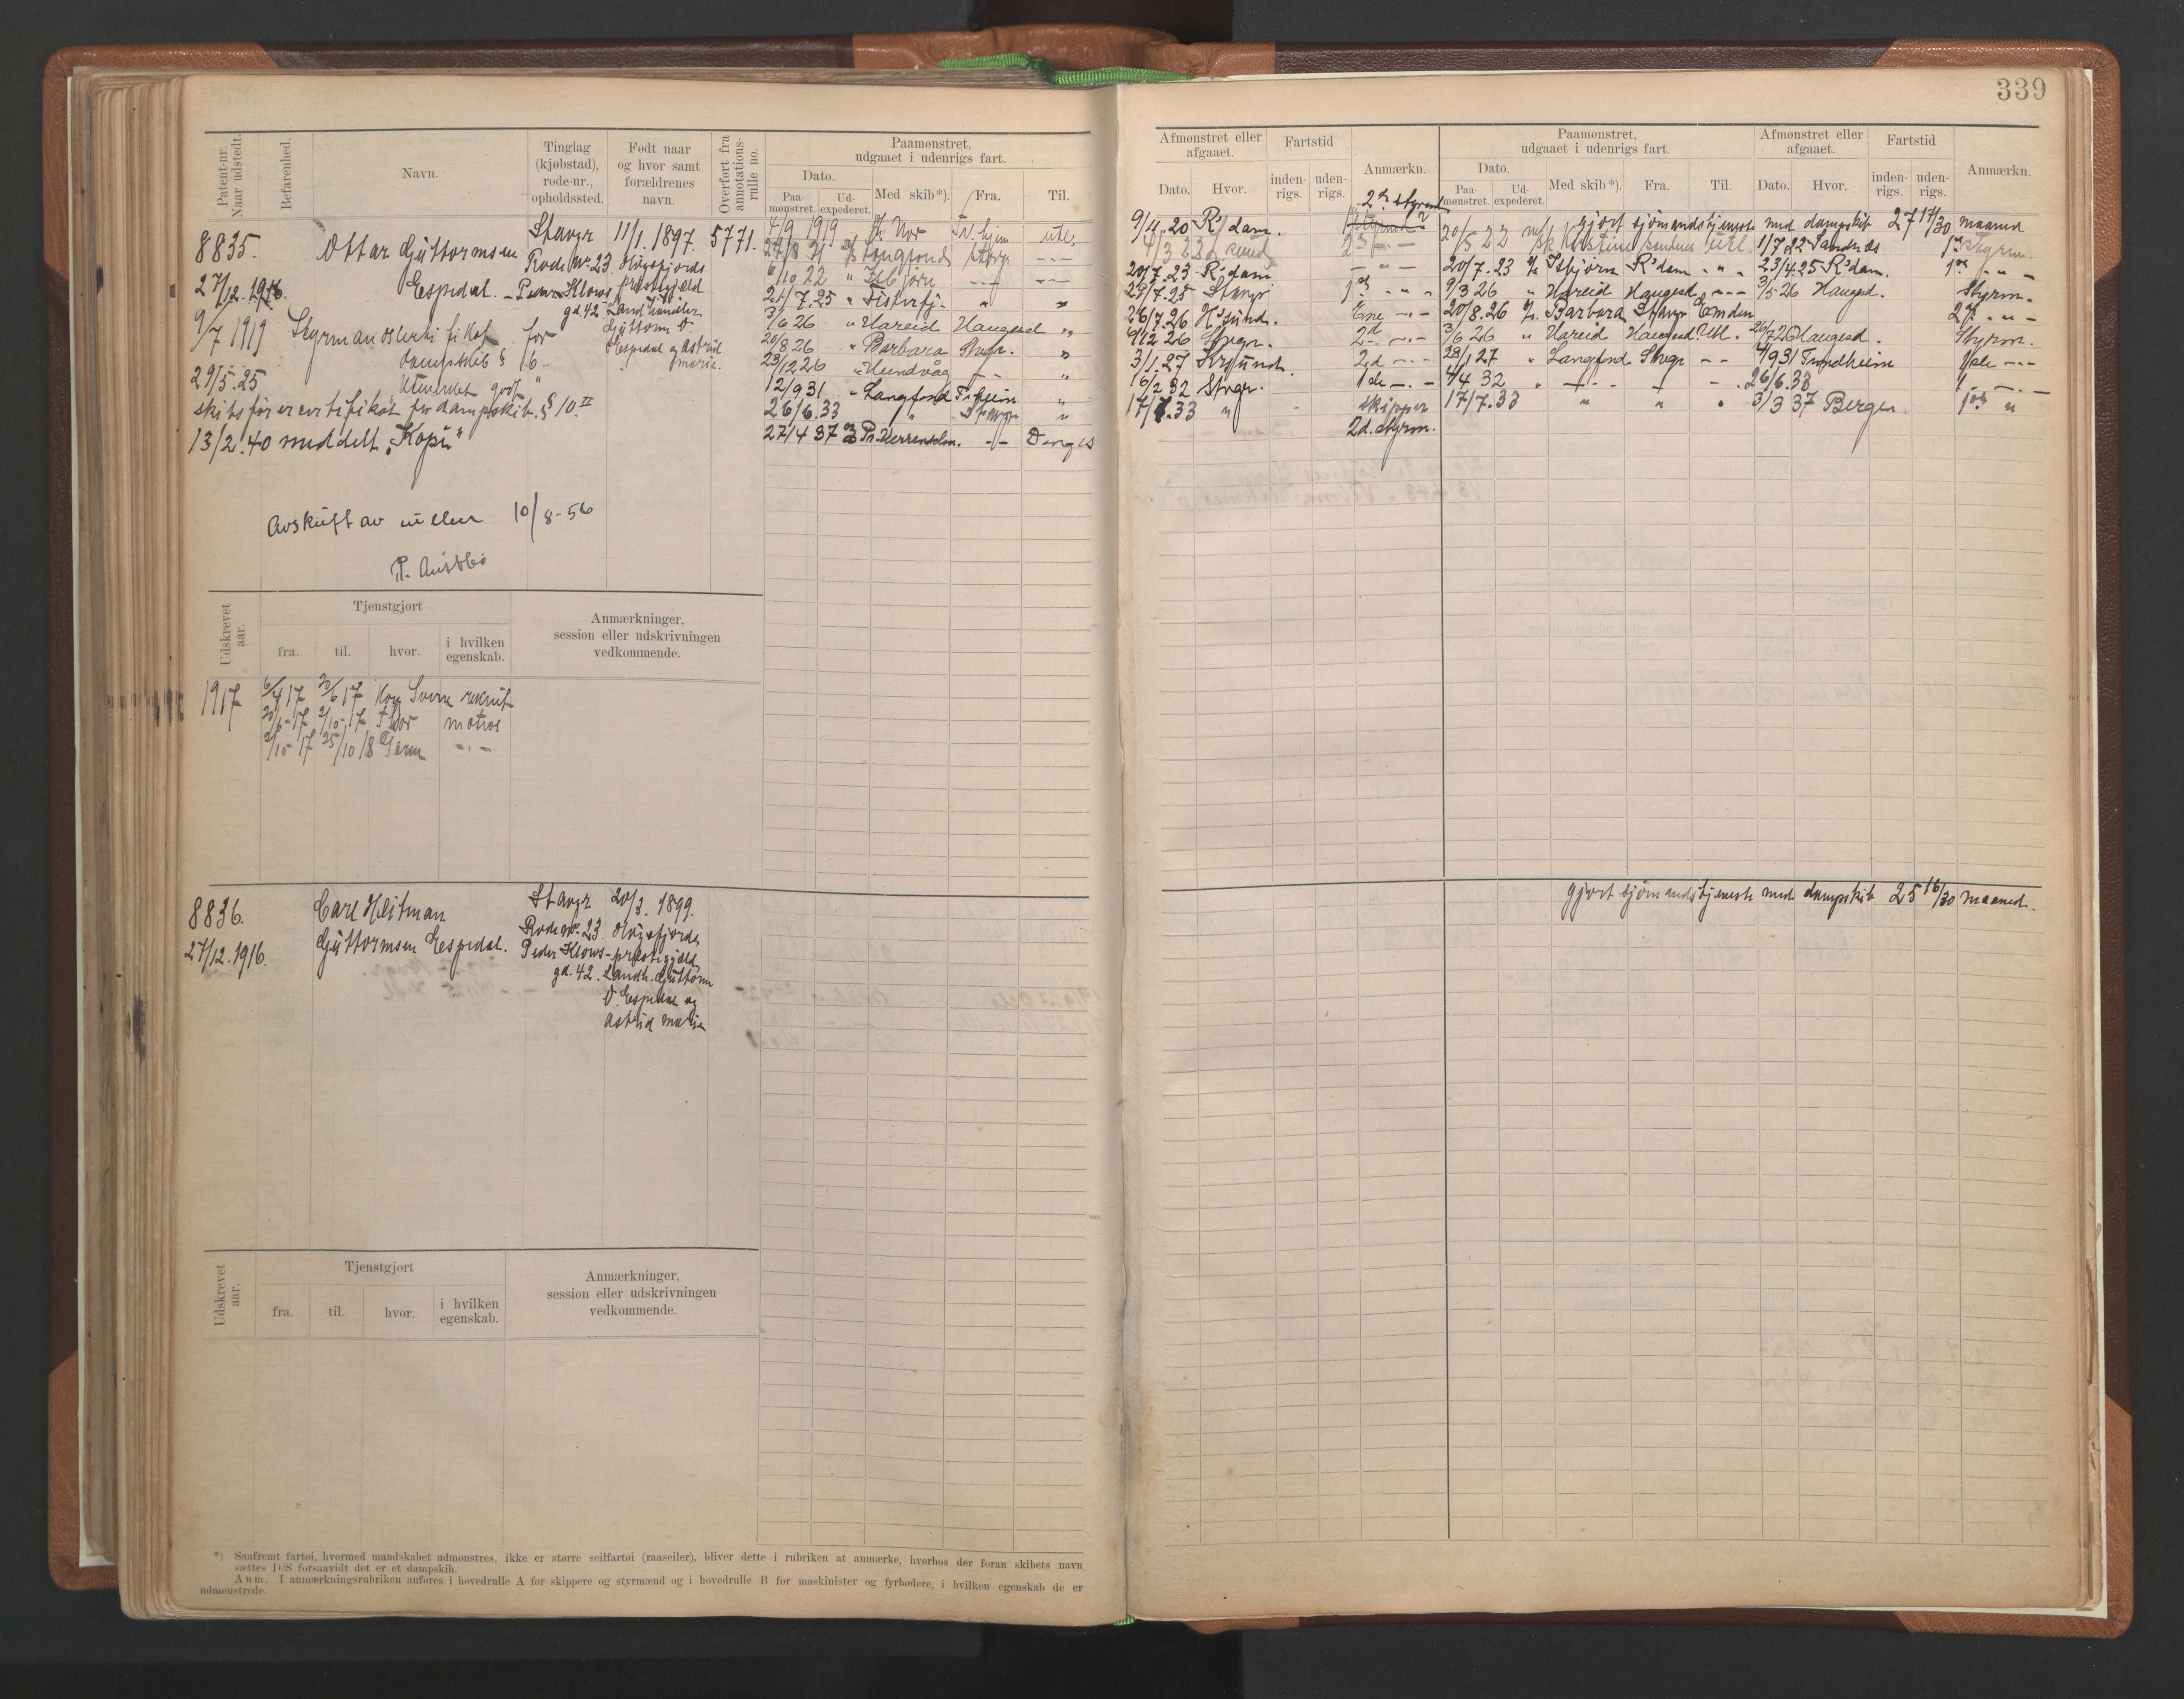 339
Patent-nr. Naar udstedt.
Befarenhed.
Navn.
Tinglag (kjøbstad), rode-nr., opholdssted.
Født naar og hvor samt forældrenes navn.
Overført fra annotations-rulle no.
Paamønstret, udgaaet i udenrigs fart.
Dato.
Paa-mønstret.
Ud-expederet.
Med skib*).
Fra.
Til.
Afmønstret eller afgaaet.
Dato.
Hvor.
Fartstid
inden-rigs.
uden-rigs.
Anmærkn.
Paamønstret, udgaaet i udenrigs fart.
Dato.
Paa-mønstret.
Ud-expederet.
Med skib*).
Fra.
Til.
Afmønstret eller afgaaet.
Dato.
Hvor.
Fartstid
inden-rigs.
uden-rigs.
Anmærkn.
8835.
27/12.1916.
Ottar Guttormsen
Espedal.
Stavgr
Rode Nr. 23
Peder Klows
gd. 42.
11/1. 1897.
Høgsfjords
præstegjæld
Landhandler
Guttorm O.
Espedal og Astrid
Marie.
5771.
9/7 1919 Styrmandscertifikat for
dampskib § 6.
29/5.25 Utvidet godt.
skibsførercertifikat for dampskib. § 10.II
13/2.40 meddelt "Kopi"
Avskrift av rullen 10/8-56
P. Austbø
4/9 1919 Nor hjem ute.
27/8 21 Langfond Stavgr -"-
6/10 22 " Isbjørn -"- -"-
21/7.25 " Fisterfj. " "
3/6 26 " Hareid Haugesd "
20/8 26 " Barbara Stvgr. "
23/12 26 " Hundvåg -"- "
12/9 31 " Langfond Tr.heim "
26/6.33 " Stavgr "
27/4 37
9/11.20 R'dam. 2den styrmd
4/3 22
20/7.23 R'dam -"-
29/7.25 Stavgr 1ste " "
26/7.26 H'sund. Ene -"-
9/12 26 Stvgr. 2d -"-
3/1.27 Kr.sund. 2.d -"-
16/2 32 Stvgr. 1ste -"-
17/7.33 " skipper
2d. styrm.
gjort sjömandstjeneste med dampskib 27 17/30 maaned
20/5 22 Kirstine Sandnes utl. 1/7 22 Sandnes 1ste styrm.
20/7.23 Isbjørn R'dam " 23/4.25 R'dam. 1ste " -
9/3 26 " Hareid Haugesd -"- 3/5 26 Haugesd. Styrm.
20/8.26 Barbara Stavgr Emden 2d. -"-
3/6 26 " Hareid Haugesd. Utl. 26/7 26 Haugesd. Styrm.
28/1 27 " Langfond Stvgr -- 4/9 31 Trondheim 1ste -"-
4/4 32 " -"- -"- 26/6.33 1 -"-
17/7.33 " " " 3/3 37 Bergen 1ste "
Udskrevet aar.
Tjenstgjort
fra.
til.
hvor.
i hvilken egenskab.
Anmærkninger, session eller udskrivningen vedkommende.
1917
6/4 17 20/6 17 Kong Sverre rekrut
20/6-17 2/10-17 Thor matros
2/10-17 25/10 18 -"-
8836.
27/12.1916.
Carl Heitman
Guttormsen Espedal.
Stavgr
Rode nr. 23
Peder Klows-
gd. 42.
20/3. 1899.
Høgsfjords
præstegjæld
Landh. Guttorm
O. Espedal og
Astrid Marie
gjort sjömandstjeneste med dampskib 25 16/30 maaned.
Udskrevet aar.
Tjenstgjort
fra.
til.
hvor.
i hvilken egenskab.
Anmærkninger, session eller udskrivningen vedkommende.
*) Saafremt fartøi, hvormed mandskabet udmønstres, ikke er større seilfartøi (raaseiler), bliver dette i rubriken at anmærke, hvorhos der foran skibets navn
sættes D/S forsaavidt det er et dampskib.
Anm. I anmærkningsrubriken anføres i hovedrulle A for skippere og styrmænd og i hovedrulle B for maskinister og fyrbødere, i hvilken egenskab de er
udmønstrede.